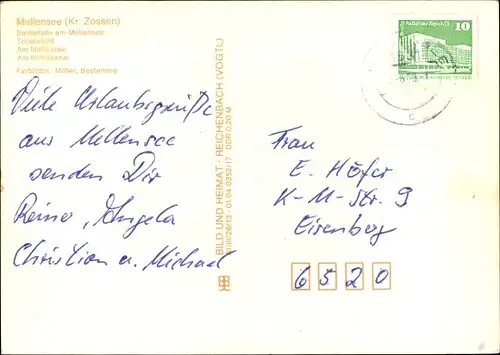 Mellensee (Kr. Zossen)
Badestelle am Mellensee
Teilansicht
Am Mellensee
Am Mellensee
Farbfotos: Müller, Bestensee
Viele Urlaubsgrüße
aus Mellensee
senden Dir
Reiner, Angela
Christian u. Michael
BILD UND HEIMAT · REICHENBACH (VOGTL)
01 04 0352/17 DDR 0,20 M
10
Palast der Republik
Frau
E. Höfer
K-M-Str. 9
Eisenberg
6520